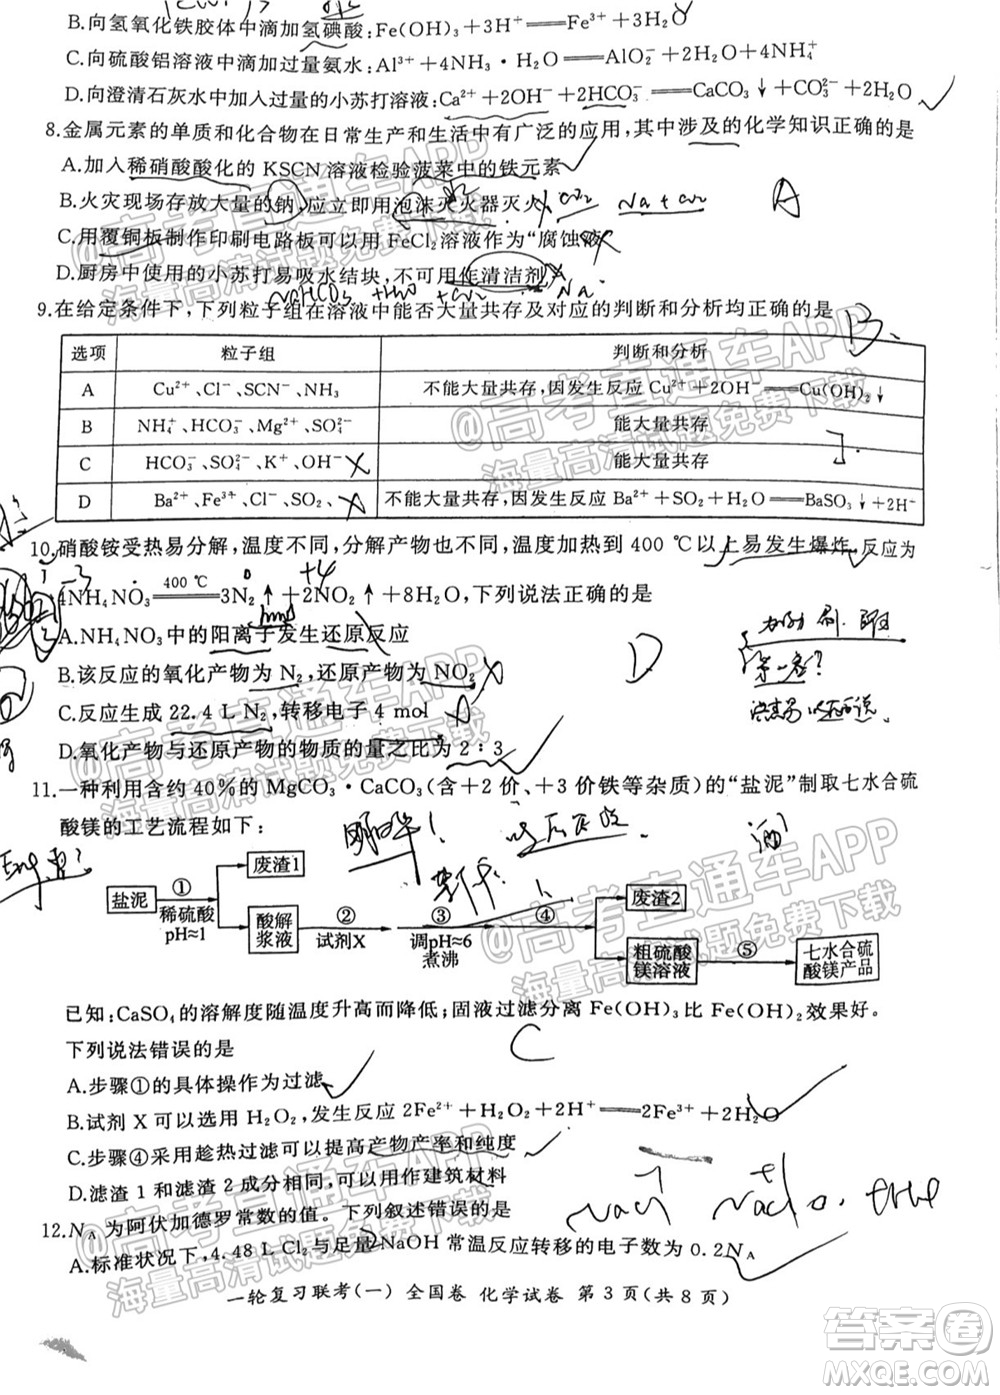 B.向氢氧化铁胶体中滴加氢碘酸:Fe(OH)₃+3H⁺══Fe³⁺+3H₂O
C.向硫酸铝溶液中滴加过量氨水:Al³⁺+4NH₃·H₂O══AlO₂⁻+2H₂O+4NH₄⁺
D.向澄清石灰水中加入过量的小苏打溶液:Ca²⁺+2OH⁻+2HCO₃⁻══CaCO₃↓+CO₃²⁻+2H₂O
8.金属元素的单质和化合物在日常生产和生活中有广泛的应用,其中涉及的化学知识正确的是
A.加入稀硝酸酸化的KSCN溶液检验菠菜中的铁元素
B.火灾现场存放大量的钠,应立即用泡沫灭火器灭火 Na+
A
C.用覆铜板制作印刷电路板可以用FeCl₂溶液作为“腐蚀液”
D.厨房中使用的小苏打易吸水结块,不可用作清洁剂
NaHCO₃ +H₂O Na
9.在给定条件下,下列粒子组在溶液中能否大量共存及对应的判断和分析均正确的是 B
选项 粒子组 判断和分析
A Cu²⁺、Cl⁻、SCN⁻、NH₃ 不能大量共存,因发生反应Cu²⁺+2OH⁻══Cu(OH)₂↓
B NH₄⁺、HCO₃⁻、Mg²⁺、SO₄²⁻ 能大量共存
C HCO₃⁻、SO₄²⁻、K⁺、OH⁻ 能大量共存
D Ba²⁺、Fe³⁺、Cl⁻、SO₂、 不能大量共存,因发生反应Ba²⁺+SO₂+H₂O══BaSO₃↓+2H⁺
10.硝酸铵受热易分解,温度不同,分解产物也不同,温度加热到400 ℃以上易发生爆炸,反应为
-3 0 +4
4NH₄NO₃══(400 ℃)3N₂↑+2NO₂↑+8H₂O,下列说法正确的是
A.NH₄NO₃中的阳离子发生还原反应
B.该反应的氧化产物为N₂,还原产物为NO₂
D
C.反应生成22.4 L N₂,转移电子4 mol
D.氧化产物与还原产物的物质的量之比为2∶3
11.一种利用含约40%的MgCO₃·CaCO₃(含+2价、+3价铁等杂质)的“盐泥”制取七水合硫
酸镁的工艺流程如下:
盐泥 ① 稀硫酸 pH≈1 废渣1
酸解浆液 ② 试剂X ③ 调pH≈6 煮沸 ④ 废渣2
粗硫酸镁溶液 ⑤ 七水合硫酸镁产品
已知:CaSO₄的溶解度随温度升高而降低;固液过滤分离Fe(OH)₃比Fe(OH)₂效果好。
下列说法错误的是 C
A.步骤①的具体操作为过滤
B.试剂X可以选用H₂O₂,发生反应2Fe²⁺+H₂O₂+2H⁺══2Fe³⁺+2H₂O
C.步骤④采用趁热过滤可以提高产物产率和纯度
D.滤渣1和滤渣2成分相同,可以用作建筑材料
-1 +1
NaCl NaClO
12.Nᴀ为阿伏加德罗常数的值。下列叙述错误的是
A.标准状况下,4.48 L Cl₂与足量NaOH常温反应转移的电子数为0.2Nᴀ
一轮复习联考(一) 全国卷 化学试卷 第3页(共8页)
@高考直通车APP
海量高清试题免费下载
@高考直通车APP
海量高清试题免费下载
@高考直通车APP
海量高清试题免费下载
@高考直通车APP
海量高清试题免费下载
@高考直通车APP
海量高清试题免费下载
答案圈
MXQE.COM